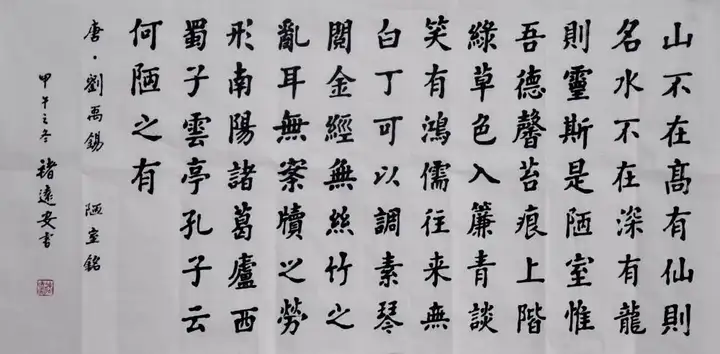 山不在髙有仙則
名水不在深有龍
則靈斯是陋室惟
吾德馨苔痕上階
綠草色入簾青談
笑有鴻儒往来無
白丁可以調素琴
閲金經無絲竹之
亂耳無案牘之勞
形南陽諸葛廬西
蜀子雲亭孔子云
何陋之有
唐·劉禹錫 陋室銘
甲午之冬 褚遠安書